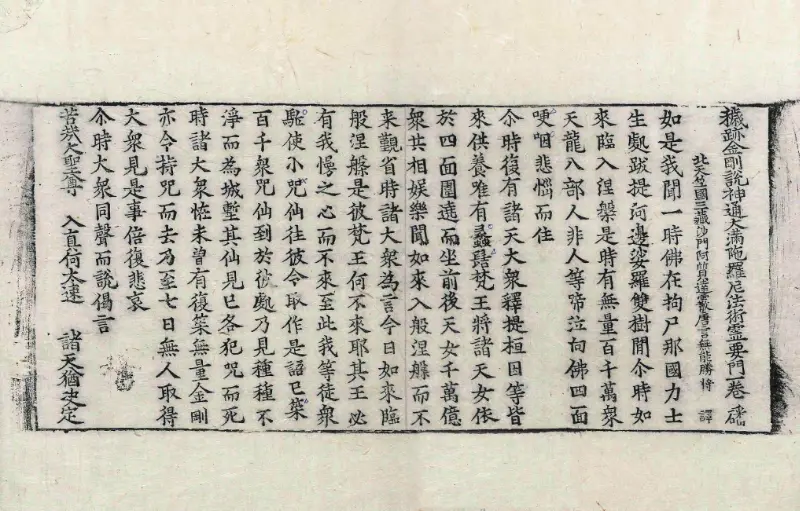 穢跡金剛說神通大滿陁羅尼法術靈要門一卷 磻
北天竺國三藏沙門阿質達霰唐言無能勝將 譯
如是我聞一時佛在拘尸那國力士
生處跋提河邊娑羅雙樹間尒時如
來臨入涅槃是時有無量百千萬衆
天龍八部人非人等啼泣向佛四面
哽咽悲惱而住
尒時復有諸天大衆釋提桓因等皆
來供養唯有蠡髻梵王將諸天女依
於四面圍遶而坐前後天女千萬億
衆共相娛樂聞如來入般涅槃而不
来觀省時諸大衆為言今日如來臨
般涅槃是彼梵王何不來耶其王必
有我慢之心而不來至此我等徒衆
駈使小咒仙往彼令取作是語已䇿
百千衆咒仙到於彼處乃見種種不
淨而為城壍其仙見已各犯咒而死
時諸大衆恠未曾有復䇿無量金剛
亦令持咒而去乃至七日無人取得
大衆見是事倍復悲哀
尒時大衆同聲而說偈言
苦哉大聖尊 入真何太速 諸天猶決定